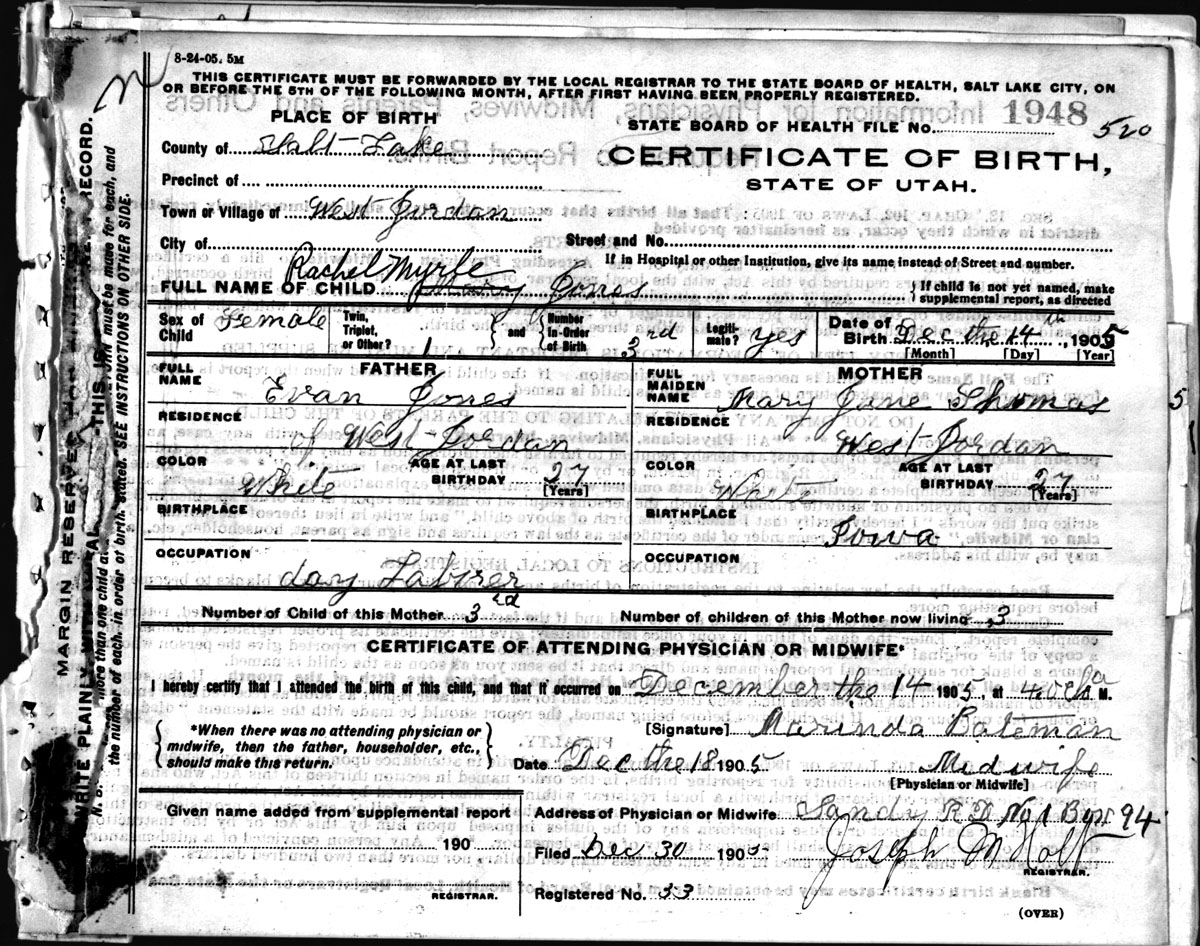 8-24-05. 5M
THIS CERTIFICATE MUST BE FORWARDED BY THE LOCAL REGISTRAR TO THE STATE BOARD OF HEALTH, SALT LAKE CITY, ON
OR BEFORE THE 5TH OF THE FOLLOWING MONTH, AFTER FIRST HAVING BEEN PROPERLY REGISTERED.
PLACE OF BIRTH
1948
STATE BOARD OF HEALTH FILE No. 520
County of Salt Lake
CERTIFICATE OF BIRTH,
STATE OF UTAH.
Precinct of
Town or Village of West Jordan
City of
Street and No.
If in Hospital or other Institution, give its name instead of Street and number.
Rachel Myrle
FULL NAME OF CHILD Mary Jones
If child is not yet named, make supplemental report, as directed
Sex of Child Female
Twin, Triplet, or Other? 1 and Number In-Order of Birth 3rd
Legitimate? yes
Date of Birth Dec the 14th, 1905
[Month] [Day] [Year]
FATHER
FULL NAME Evan Jones
RESIDENCE of West Jordan
COLOR White
AGE AT LAST BIRTHDAY 27
[Years]
BIRTHPLACE
OCCUPATION day Laborer
MOTHER
FULL MAIDEN NAME Mary Jane Thomas
RESIDENCE West Jordan
COLOR White
AGE AT LAST BIRTHDAY 27
[Years]
BIRTHPLACE Iowa
OCCUPATION
5
Number of Child of this Mother 3rd
Number of children of this Mother now living 3
CERTIFICATE OF ATTENDING PHYSICIAN OR MIDWIFE*
I hereby certify that I attended the birth of this child, and that it occurred on December the 14 1905 at 4 a M.
*When there was no attending physician or
midwife, then the father, householder, etc.,
should make this return.
[Signature] Marinda Bateman
Date Dec the 18 1905
Midwife
[Physician or Midwife]
Given name added from supplemental report
190
REGISTRAR.
Address of Physician or Midwife Sandy R D No 1 Box 94
Filed Dec 30 1905 Joseph M Holt
REGISTRAR.
Registered No. 33
(OVER)
MARGIN RESERVED
WRITE PLAINLY, WITH
THIS IS
RECORD.
more than one child at
must be made for each, and
the number of each, in order of birth, stated. SEE INSTRUCTIONS ON OTHER SIDE.